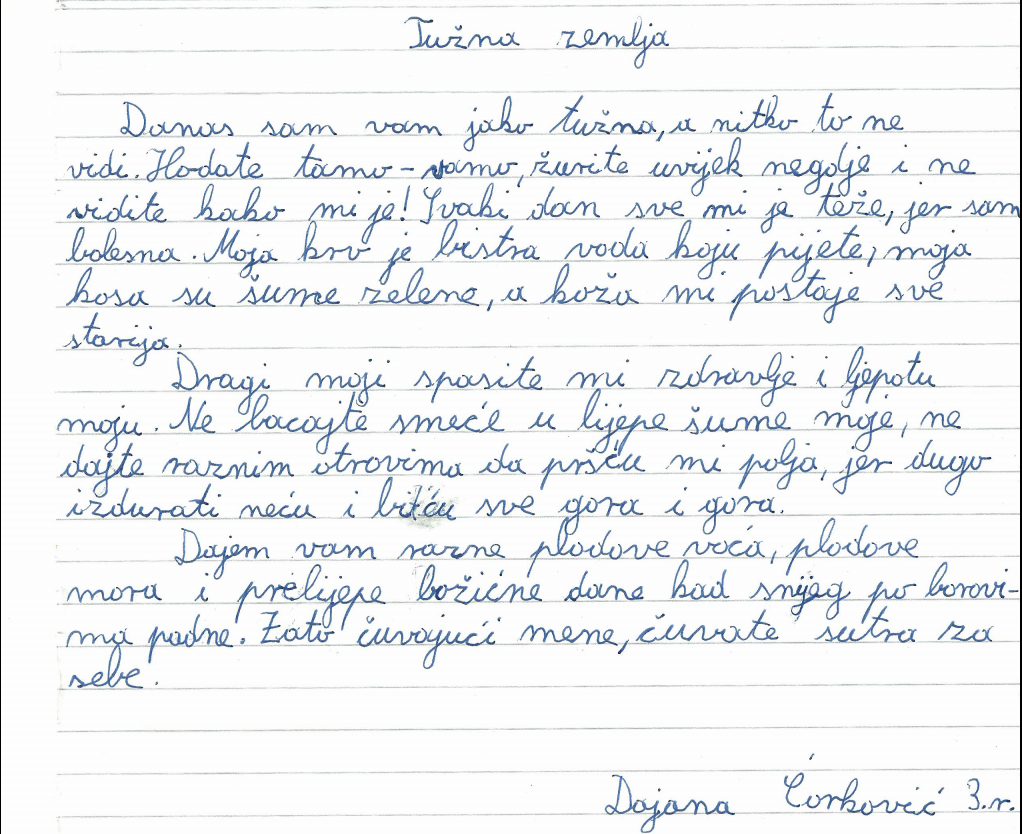 Tužna zemlja
Danas sam vam jako tužna, a nitko to ne
vidi. Hodate tamo-vamo, žurite uvijek negdje i ne
vidite kako mi je! Svaki dan sve mi je teže, jer sam
bolesna. Moja krv je bistra voda koju pijete, moja
kosa su šume zelene, a koža mi postaje sve
starija.
Dragi moji spasite mi zdravlje i ljepotu
moju. Ne bacajte smeće u lijepe šume moje, ne
dajte raznim otrovima da pršću mi polja, jer dugo
izdurati neću i bitću sve gora i gora.
Dajem vam razne plodove voća, plodove
mora i prelijepe božićne dane kad snijeg po borovi-
ma padne. Zato čuvajući mene, čuvate sutra za
sebe.
Dajana Ćorković 3.r.